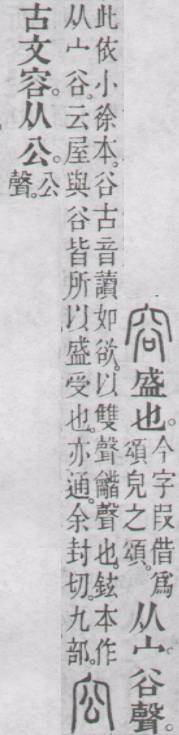 容盛也。今字叚借爲頌皃之頌。从宀。谷聲。
此依小徐本。谷古音讀如欲。以雙聲龤聲也。鉉本作
从宀谷。云屋與谷皆所以盛受也。亦通。余封切。九部。㝐
古文容。从公。公聲。